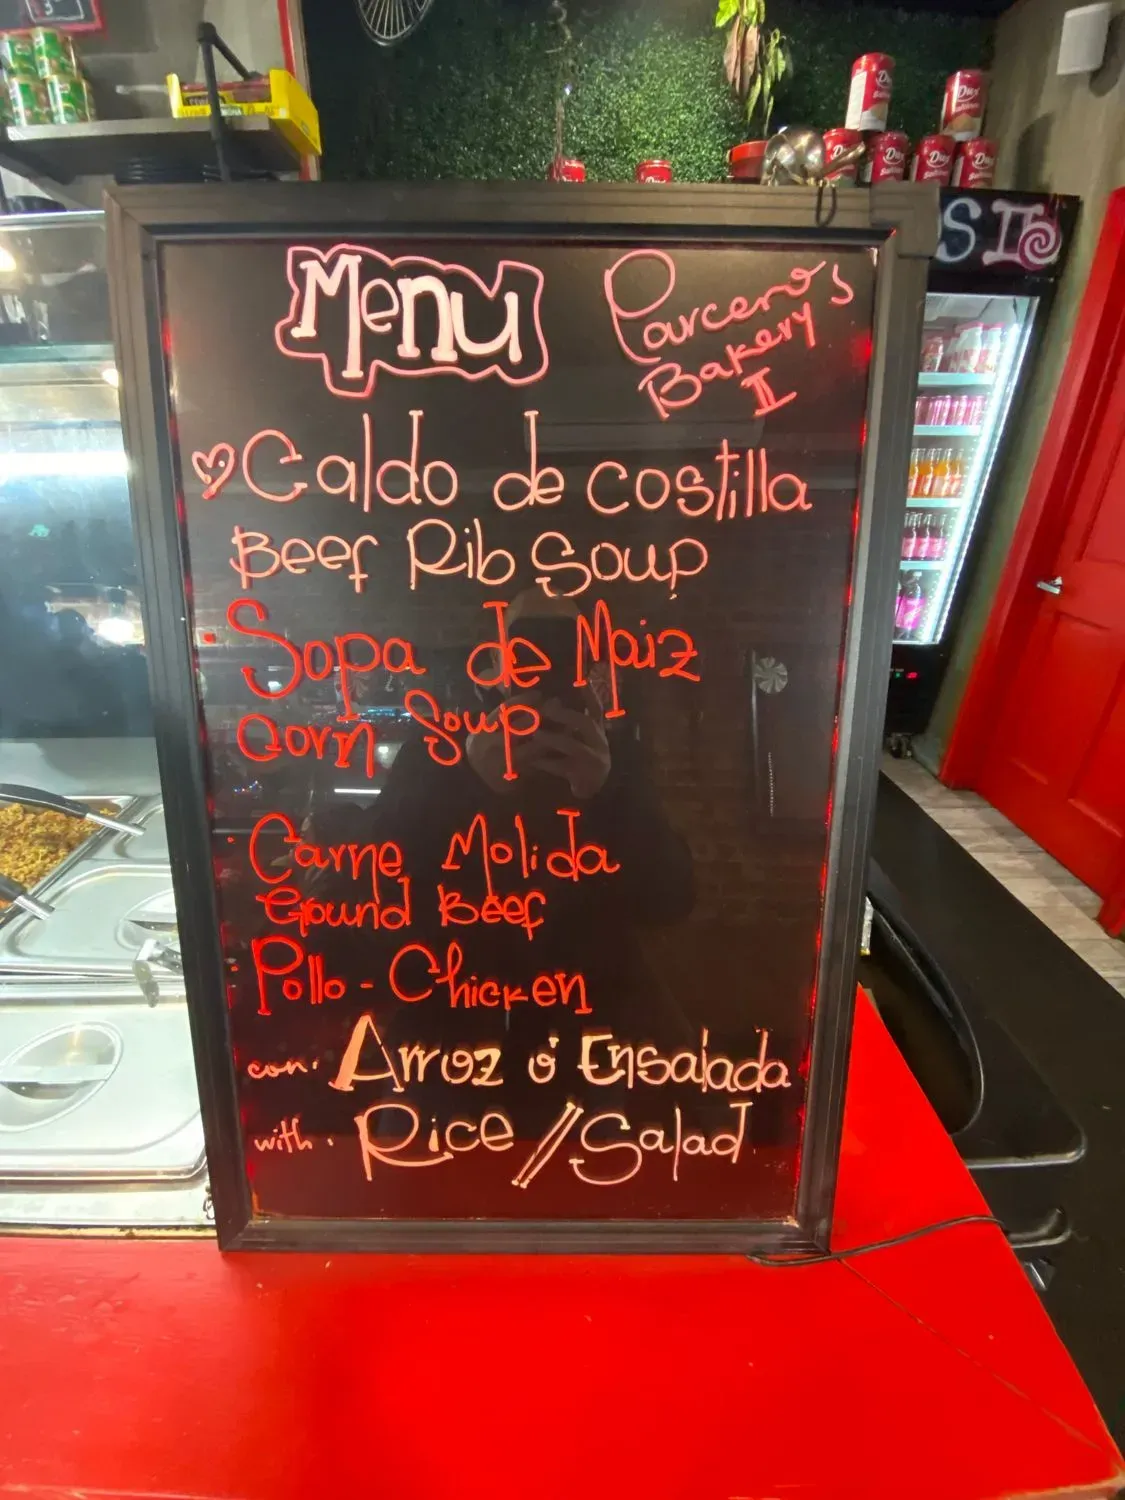 Menu
Parcero's
Bakery
II
Caldo de costilla
Beef Rib Soup
Sopa de Maiz
Corn Soup
Carne Molida
Ground Beef
Pollo - Chicken
con. Arroz ó Ensalada
with. Rice // Salad
S II
Dux
Dux
Dux
Dux
Dux